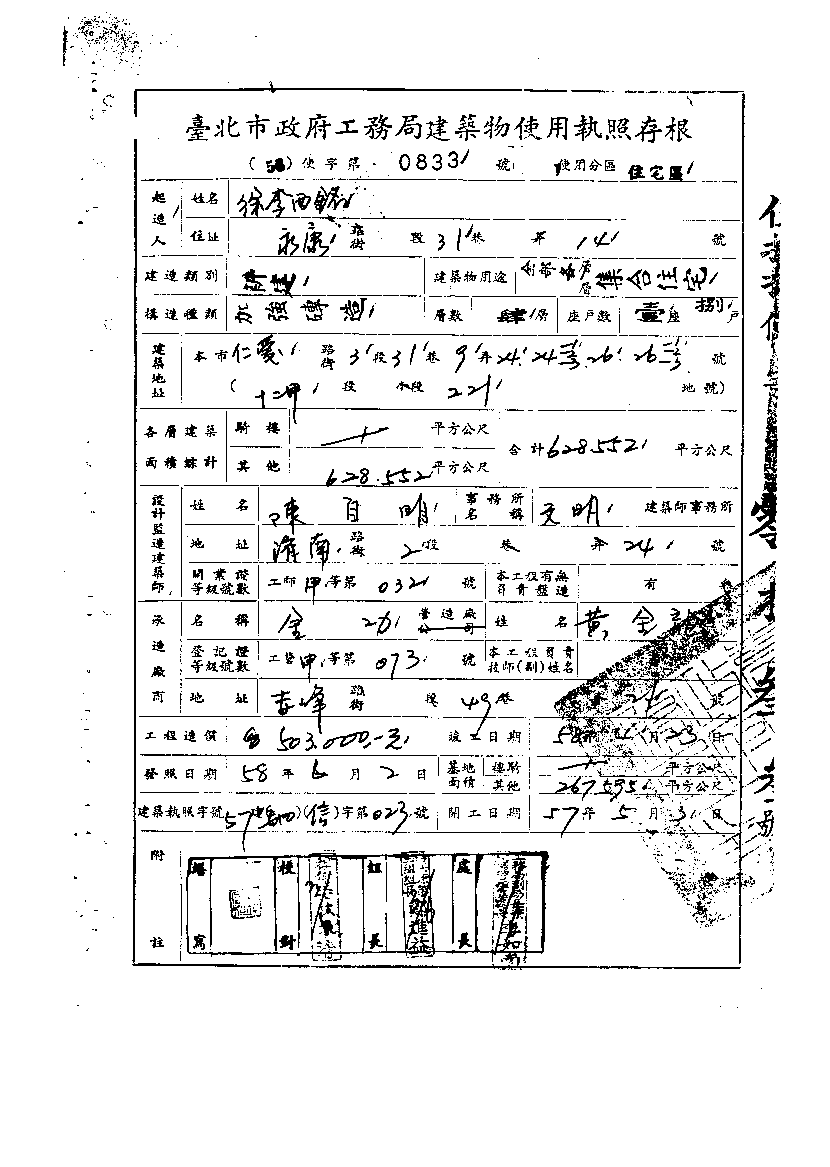 臺北市政府工務局建築物使用執照存根
(58) 使字第 0833 號 使用分區 住宅區
起造人 姓名 徐李西
住址 永康 路街 段 31 巷 弄 14 號
建造類別 建築物用途 層 集合住宅
構造種類 加強磚造 層數 肆 層 座戶數 壹 座 捌 戶
建築地址 本市 仁愛 路街 3 段 31 巷 9 弄 24 24 26 26 號
( 十二甲 段 小段 221 地號)
各層建築面積總計 騎樓 平方公尺 合計 628.552 平方公尺
其他 628.552 平方公尺
設計監造建築師 姓名 陳 明 事務所名稱 文明 建築師事務所
地址 濟南 路街 2 段 巷 弄 24 號
開業證等級號數 工師 甲 等第 032 號 本工程有無負責監造 有
承造廠商 名稱 金 營造廠公司 姓名 黃金
登記證等級號數 工營 甲 等第 073 號 本工程負責技師(副)姓名
地址 路街 段 49 巷 號
工程造價 503,000.-元 竣工日期 58 年 月 23 日
發照日期 58 年 6 月 2 日 基地面積 騎樓 平方公尺
其他 267.595 平方公尺
建築執照字號 57 (信)字第 023 號 開工日期 57 年 5 月 3 日
附註 繕寫 校對 組長 處長